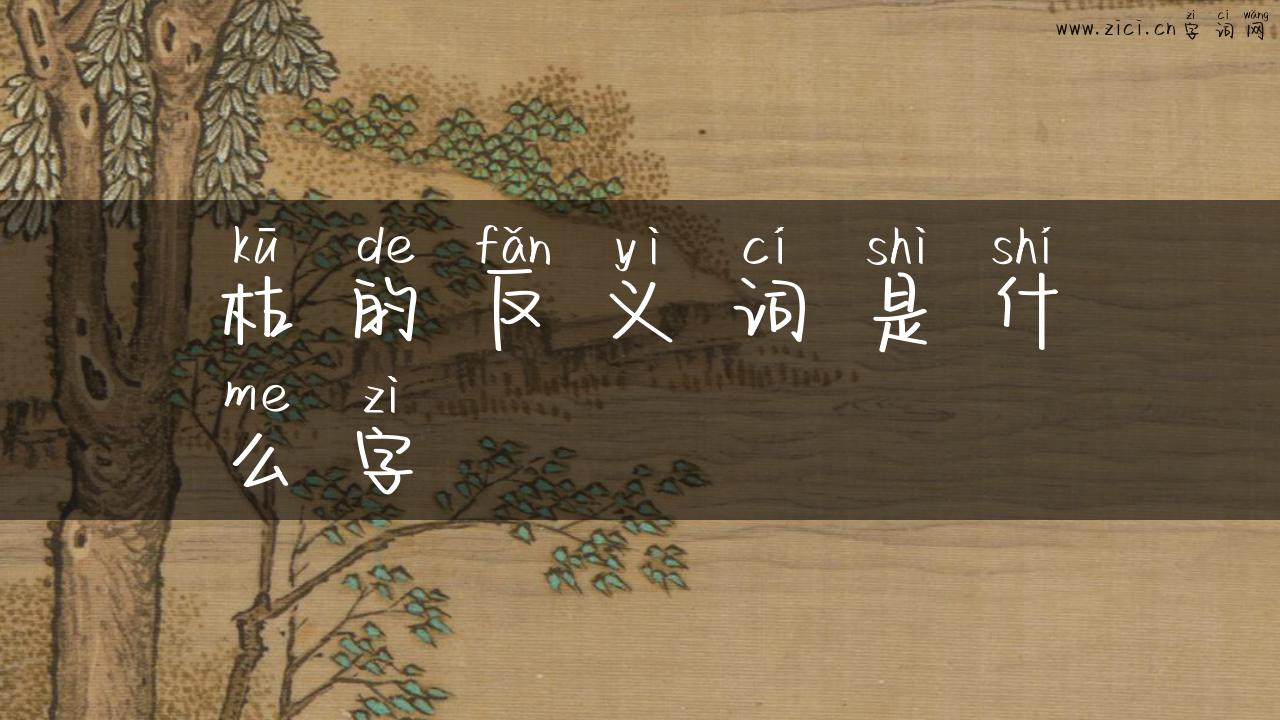 zì cí wǎng
www.zici.cn 字词网
kū de fǎn yì cí shì shí
枯的反义词是什
me zì
么字